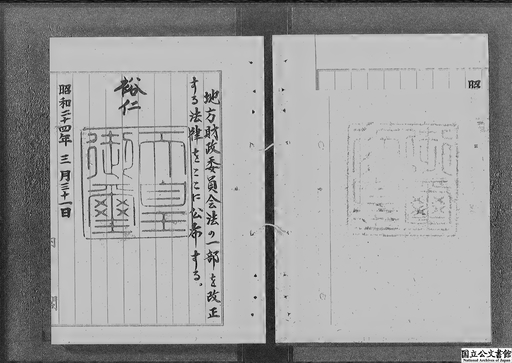 地方財政委員会法の一部を改正
する法律をここに公布する。
裕仁
天皇
御璽
昭和二十四年三月三十一日
国立公文書館
National Archives of Japan